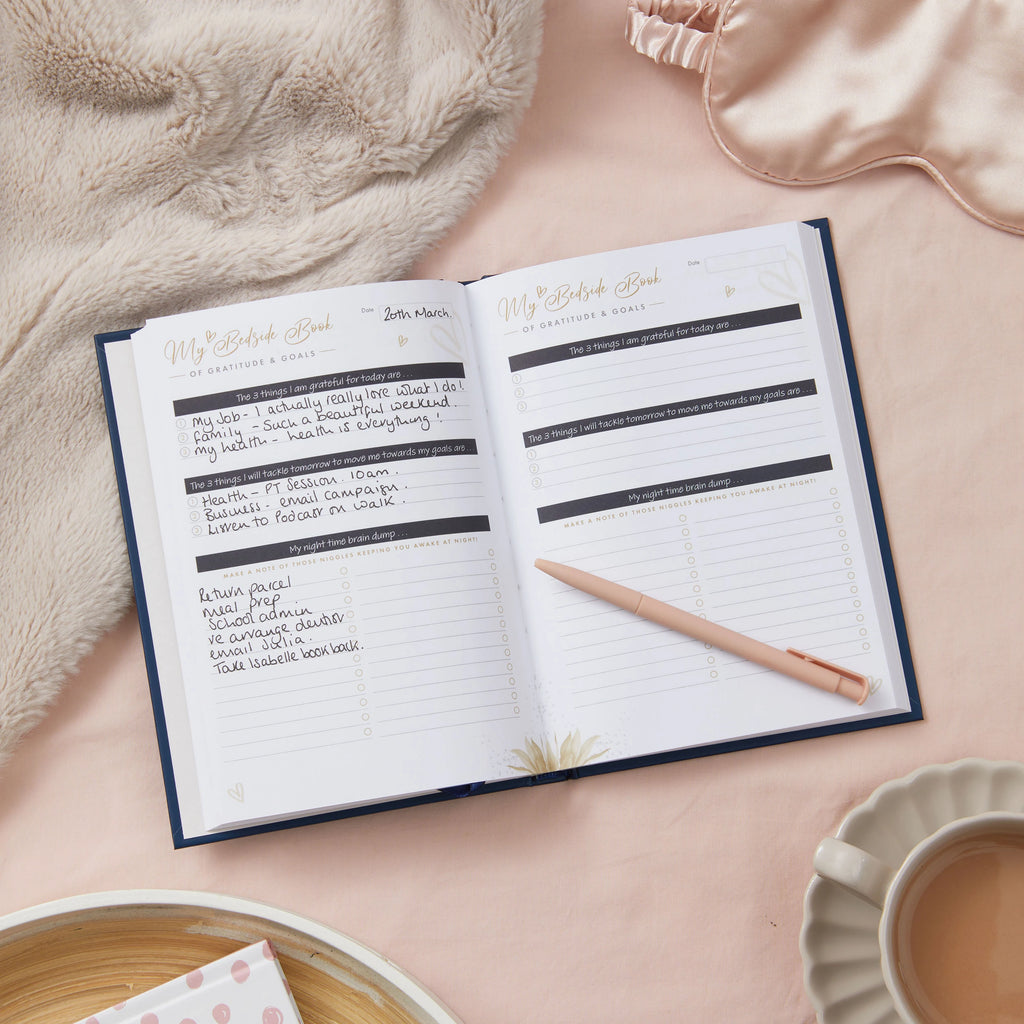 My Bedside Book
OF GRATITUDE & GOALS
Date
20th March.
The 3 things I am grateful for today are...
1 My Job - I actually really love what I do!.
2 Family - Such a beautiful weekend.
3 My health - health is everything!
The 3 things I will tackle tomorrow to move me towards my goals are...
1 Health - PT Session. 10am.
2 Business - email campaign.
3 Listen to Podcast on walk.
My night time brain dump...
MAKE A NOTE OF THOSE NIGGLES KEEPING YOU AWAKE AT NIGHT!
Return parcel
meal prep
School admin
re arrange dentist
email Julia.
Take Isabelle book back.
My Bedside Book
OF GRATITUDE & GOALS
Date
The 3 things I am grateful for today are...
1
2
3
The 3 things I will tackle tomorrow to move me towards my goals are...
1
2
3
My night time brain dump...
MAKE A NOTE OF THOSE NIGGLES KEEPING YOU AWAKE AT NIGHT!